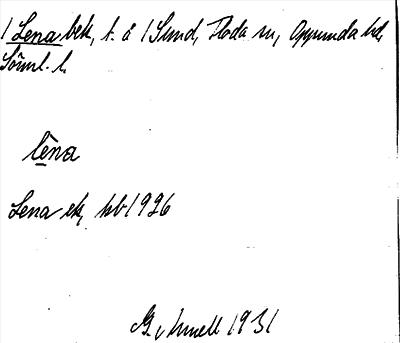 / Lena bek, t. å / Sund, Floda sn, Oppunda hd,
Sörml. l.
lēna
Lena ek, hb 1926
G. Arnell 1931